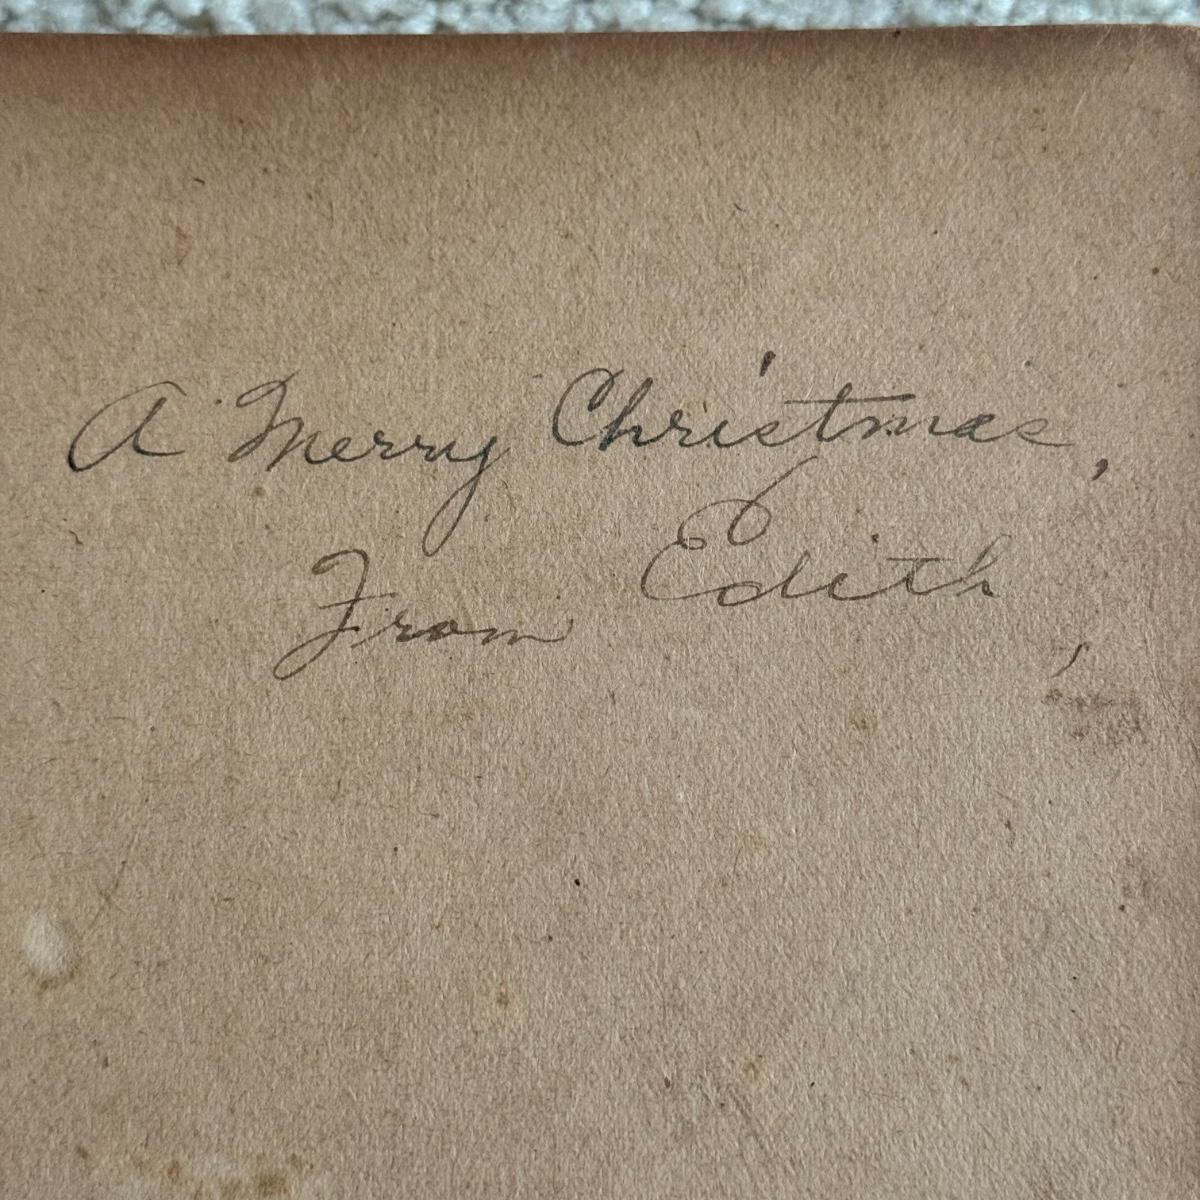 A Merry Christmas,
From Edith,